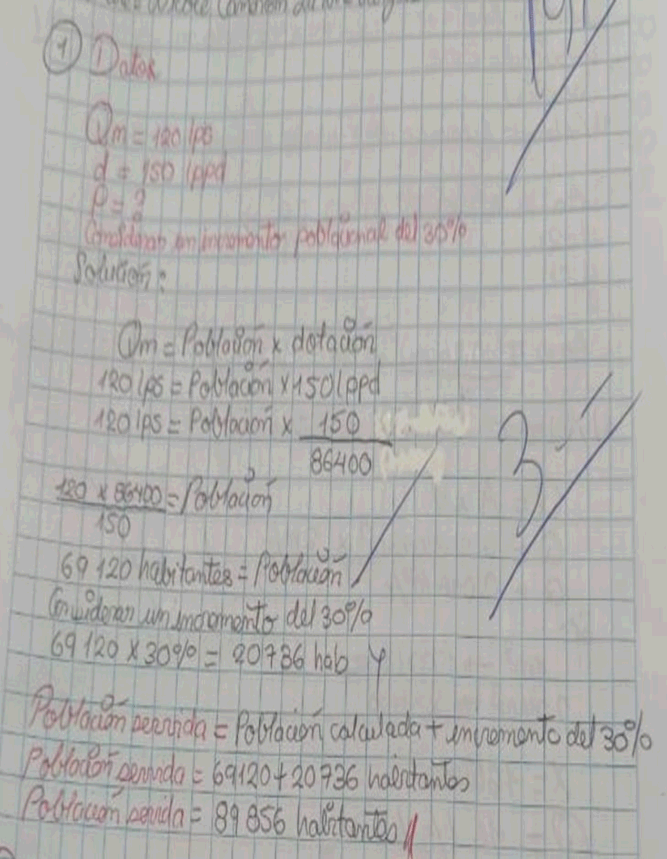 1 Datos
Qm = 120 lps
d = 150 lppd
P = ?
Considerar un incremento poblacional del 30%
Solución:
Qm = Población x dotación
120 lps = Población x 150 lppd
120 lps = Población x 150
86400
120 x 86400 = Población
150
69120 habitantes = Población
Considerar un incremento del 30%
69120 x 30% = 20736 hab
Población servida = Población calculada + incremento del 30%
Población servida = 69120 + 20736 habitantes
Población servida = 89856 habitantes